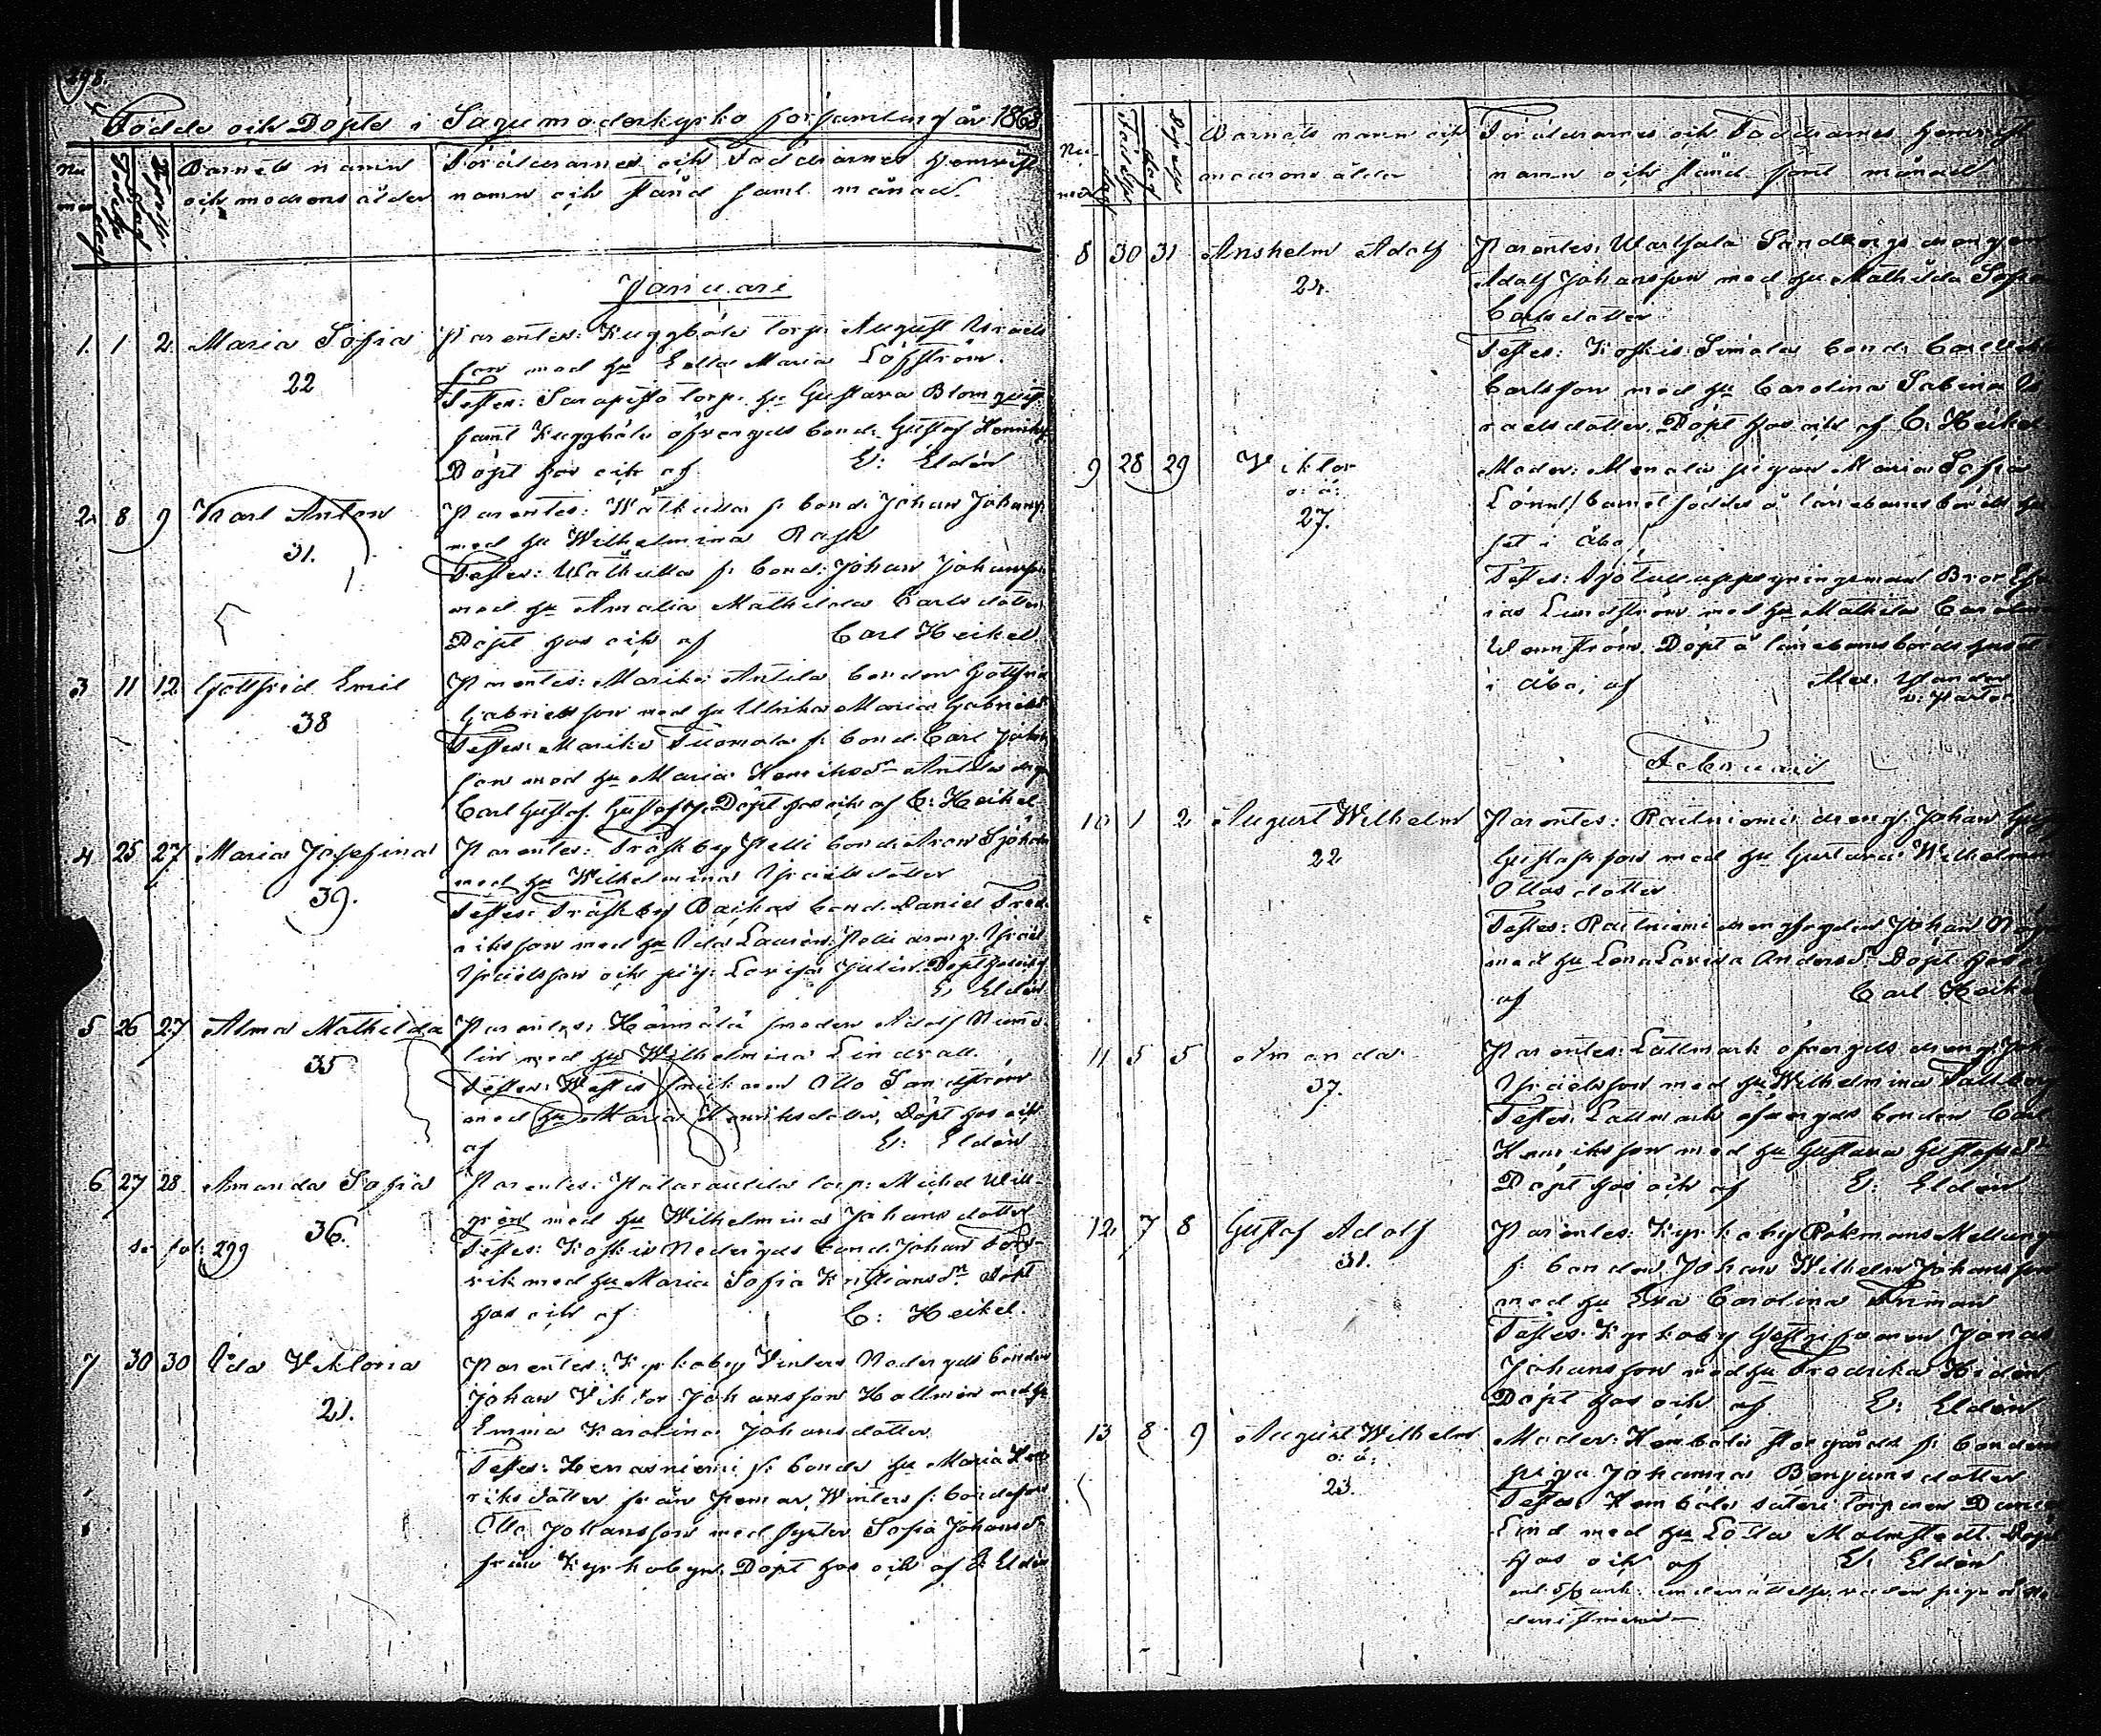 298.
Födde och Döpte i Sagu moderkyrko församling år 1863
Nu mer
Födelse dag
Döpelse dag
Barnets namn
och modrens ålder
Föräldrarnes och Faddrarnes hemvist
namn och stånd samt månad.
Januari
1. 1 2 Maria Sofia
22
Parentes: Kuggböle torp. August Israels
son med hu Lolla Maria Löfström.
Testes: Sarapisto torp. hu Gustava Blomquist
samt Kuggböle öfvergds bond. Gustaf Henriks
Döpt hos och af E: Eldén
2. 8 9 Karl Anton
31.
Parentes: Wätkulla f. bond. Johan Johans
med hu Wilhelmina Rask
Testes: Wätkulla f. bond: Johan Johansson
med hu Amalia Mathilda Carlsdotter
Döpt hos och af Carl Heikel.
3 11 12 Gottfrid Emil
38
Parentes: Marike Antila bonden Gottfrid
Gabrielsson med hu Ulrika Maria Gabriels
Testes: Marike Tuomola f. bond. Carl Johan
son med hu Maria Henriksdr Antila
Carl Gustaf Gustafss. Döpt hos och af C: Heikel
4 25 27 Maria Josefina
39.
Parentes: Träskby Pelli bond. Aron Sjöholm
med hu Wilhelmina Israelsdotter
Testes: Träskby Backas bond. Daniel Fred
riksson med hu Ida Laurén: Pelli dreng. Israel
Israelsson och pig. Lovisa Julin. Döpt hos och af
E, Eldén
5 26 27 Alma Mathilda
35
Parentes: Härmälä smeden Adolf Numme
lin med hu Wilhelmina Lindvall.
Testes: Westis snickaren Otto Sandström
med hu Maria Henriksdotter, Döpt hos och
af E: Eldén
6 27 28 Amanda Sofia
36.
se fol: 299
Parentes: torp: Michel Will
grén med hu Wilhelmina Johansdotter
Testes: Koskis Nedergds bond. Johan
rik med hu Maria Sofia Kristiansdr Döpt
hos och af C: Heikel.
7 30 30 Ida Viktoria
21.
Parentes: Kyrkoby Winters Nedergds bonden
Johan Viktor Johansson Hallmén med hu
Emma Karolina Johansdotter
Testes: Henasniemi f. bonde hu Maria Hen
riksdotter från Pemar, Winters f. bondeson
Otto Johansson med syster Sofia Johansdr
från Kyrkobyn. Döpt hos och af E: Eldén
Nu mer
Födelse dag
Döpelse dag
Barnets namn och
modrens ålder
Föräldrarnes och Faddrarnes hemvist
namn och stånd samt månad
8 30 31 Anshelm Adolf
24.
Parentes: Sandbergs drengen
Adolf Johansson med hu Mathilda Sofia
Carlsdotter
Testes: Koskis Simola bond. Carl
Carlsson med hu Carolina Sabina Is
raelsdotter. Döpt hos och af C. Heikel.
9 28 29 Viktor
o: ä:
27.
Moder: Menala pigan Maria Sofia
Lönn/ barnet föddes å barnsbörds hu
set i Åbo/
Testes: Sjötulluppsyningsman Bror
Lundström med hu Mathilda Carolina
Wennström. Döpt å barnsbördshuset
i Åbo, af Alex.
v: Pastor.
Februari
10 1 2 August Wilhelm
22
Parentes: Raitniemi dreng. Johan
Gustafsson med hu Gustava Wilhelmina
Ottosdotter
Testes: Raitniemi drengfogden Johan
med hu Lena Lovisa Andersdr. Döpt hos och
af Carl Heikel
11 5 5 Amanda
37.
Parentes: Lallmark öfvergds dreng. Joh
Israelsson med hu Wilhelmina Tallberg
Testes: Lallmark öfvergds bonden Carl
Henriksson med hu Gustava Gustafsdr
Döpt hos och af E: Eldén
12 7 8 Gustaf Adolf
31.
Parentes: Kyrkoby Rökmans Mellangds
f. bonden Johan Wilhelm Johansson
med hu Eva Carolina
Testes: Kyrkoby Gästgifvaren Jonas
Johansson med hu Fredrika Hedén
Döpt hos och af E: Eldén
13 8 9 August Wilhelm
o: ä:
23.
Moder: Kemböle Storgårds f. bondens
piga Johanna Benjamsdotter
Testes: Kemböle säteri torparen
Lind med hu Lotta Malmstedt. Döpt
hos och af E: Eldén